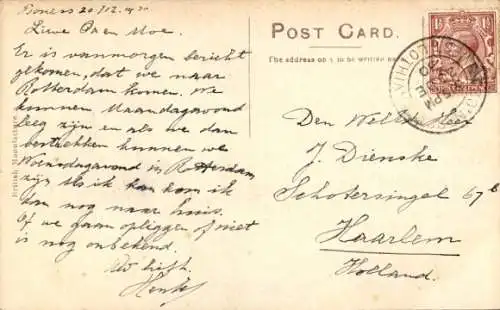 Boness 20/12 1930
Lieve Pa en Moe.
Er is vanmorgen bericht
gekomen, dat we naar
Rotterdam komen. We
kunnen Maandagavond
leeg zijn en als we dan
vertrekken kunnen we
Woensdagavond in Rotterdam
zijn. Als ik kan kom ik
dan nog naar huis.
Of we gaan opleggen of niet
is nog onbekend.
Henk
POST CARD.
The address only to be written here
British Manufacture
Den Weled. Heer
J. Dienske
Schotersingel 67
Haarlem
Holland.